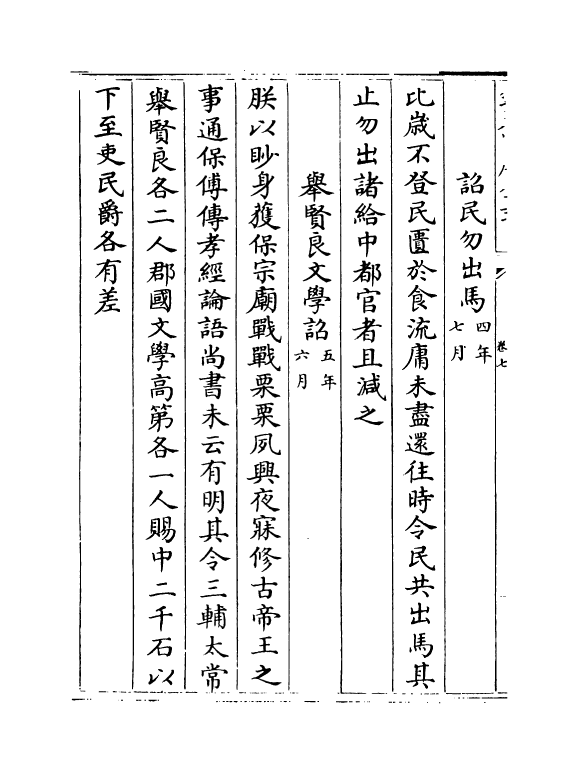 詔民勿出馬 四年七月
比歲不登民匱於食流庸未盡還往時令民共出馬其
止勿出諸給中都官者且減之
舉賢良文學詔 五年六月
朕以眇身獲保宗廟戰戰栗栗夙興夜寐修古帝王之
事通保傅傳孝經論語尚書未云有明其令三輔太常
舉賢良各二人郡國文學高第各一人賜中二千石以
下至吏民爵各有差
卷七